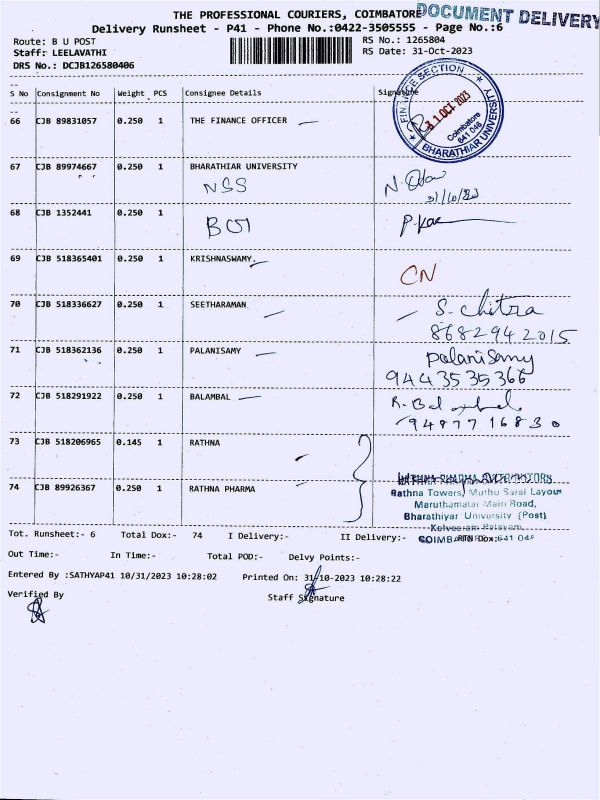 THE PROFESSIONAL COURIERS, COIMBATORE DOCUMENT DELIVERY
Delivery Runsheet - P41 - Phone No.:0422-3505555 - Page No.:6
Route: B U POST RS No.: 1265804
Staff: LEELAVATHI RS Date: 31-Oct-2023
DRS No.: DCJB126580406
S No Consignment No Weight PCS Consignee Details Signature
FINANCE SECTION
31 OCT 2023
Coimbatore
641 046
BHARATHIAR UNIVERSITY
66 CJB 89831057 0.250 1 THE FINANCE OFFICER
67 CJB 89974667 0.250 1 BHARATHIAR UNIVERSITY
NSS
31/10/23
68 CJB 1352441 0.250 1
69 CJB 518365401 0.250 1 KRISHNASWAMY
CN
70 CJB 518336627 0.250 1 SEETHARAMAN S. Chitra
8682942015
71 CJB 518362136 0.250 1 PALANISAMY Palanisamy
9443535366
72 CJB 518291922 0.250 1 BALAMBAL
9487716830
73 CJB 518206965 0.145 1 RATHNA
RATHNA PHARMA DISTRIBUTORS
74 CJB 89926367 0.250 1 RATHNA PHARMA Rathna Towers, Muthu Saral Layout
Maruthamalai Main Road,
Bharathiyar University (Post)
Tot. Runsheet:- 6 Total Dox:- 74 I Delivery:- II Delivery:- RTN Dox:-
COIMBATORE 641 046
Out Time:- In Time:- Total POD:- Delvy Points:-
Entered By :SATHYAP41 10/31/2023 10:28:02 Printed On: 31-10-2023 10:28:22
Verified By Staff Signature